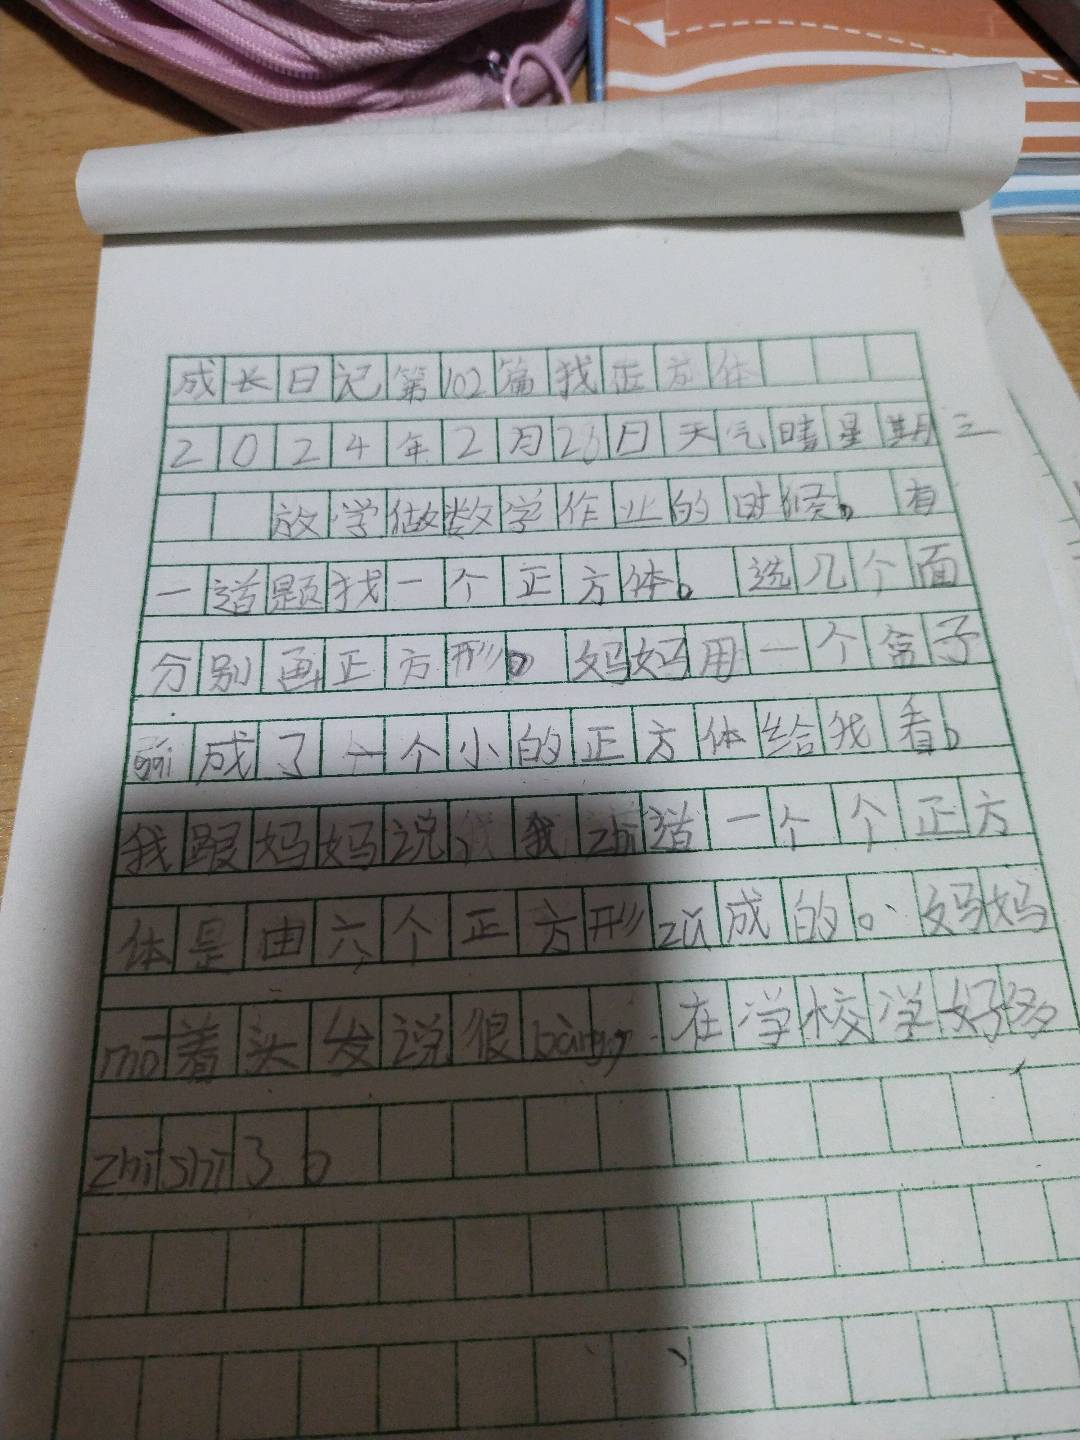 成长日记第102篇找正方体
2024年2月26日天气晴星期三
放学做数学作业的时候。有
一道题找一个正方体。选几个面
分别画正方形。妈妈用一个盒子
成了一个小的正方体给我看。
我跟妈妈说,我我zhī道一个个正方
体是由六个正方形zǔ成的。妈妈
mō着头发说很bàng,在学校学好多
zhī shi了。